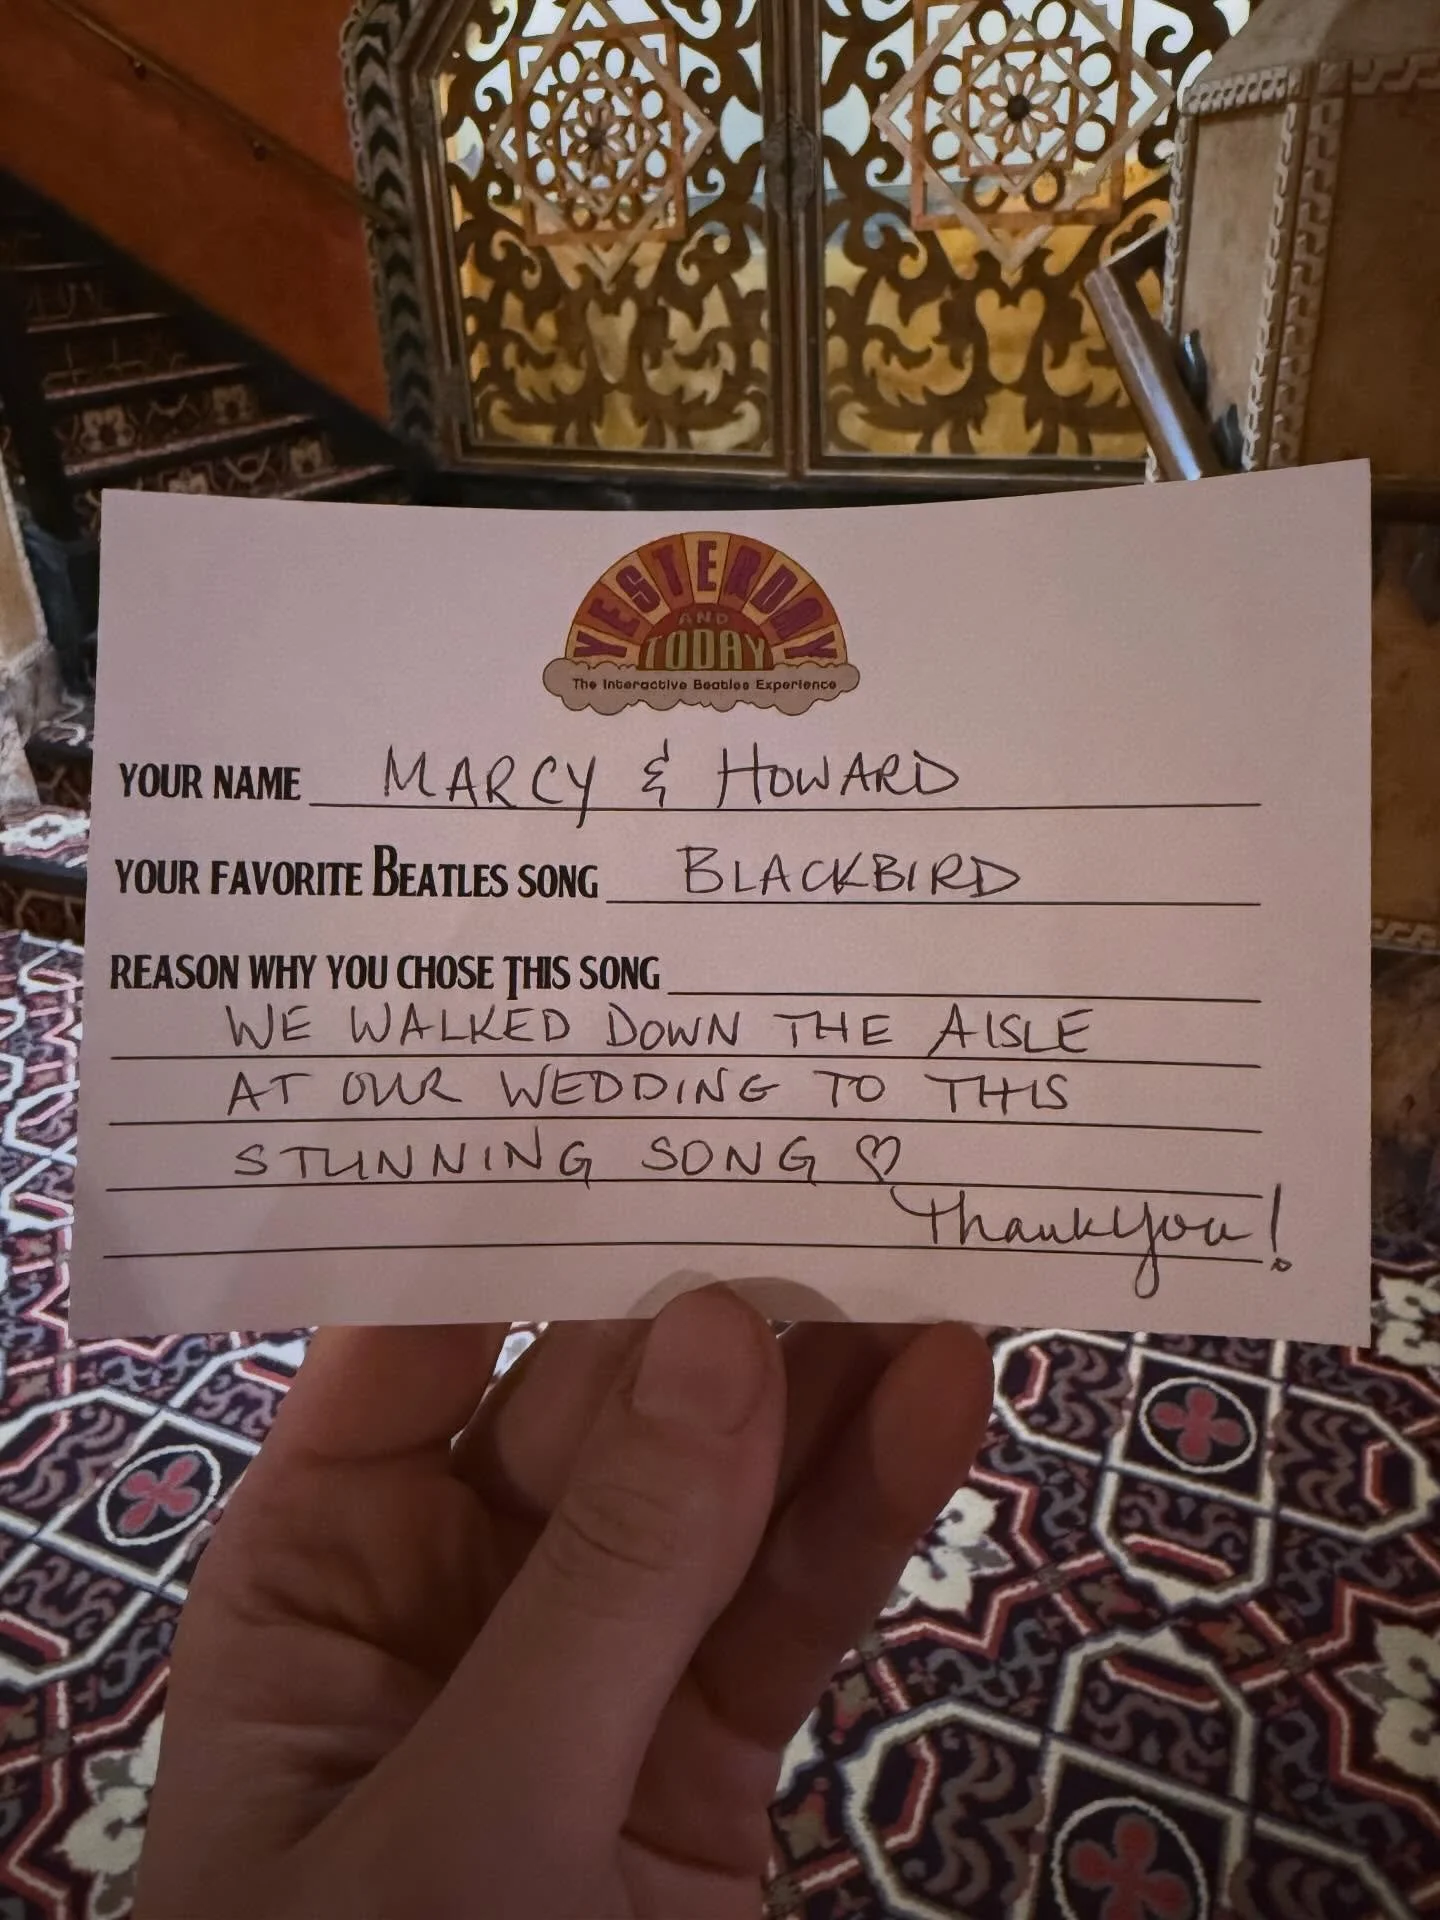 YESTERDAY
AND
TODAY
The Interactive Beatles Experience
YOUR NAME MARCY & HOWARD
YOUR FAVORITE BEATLES SONG BLACKBIRD
REASON WHY YOU CHOSE THIS SONG
WE WALKED DOWN THE AISLE
AT OUR WEDDING TO THIS
STUNNING SONG ♡
Thank you!